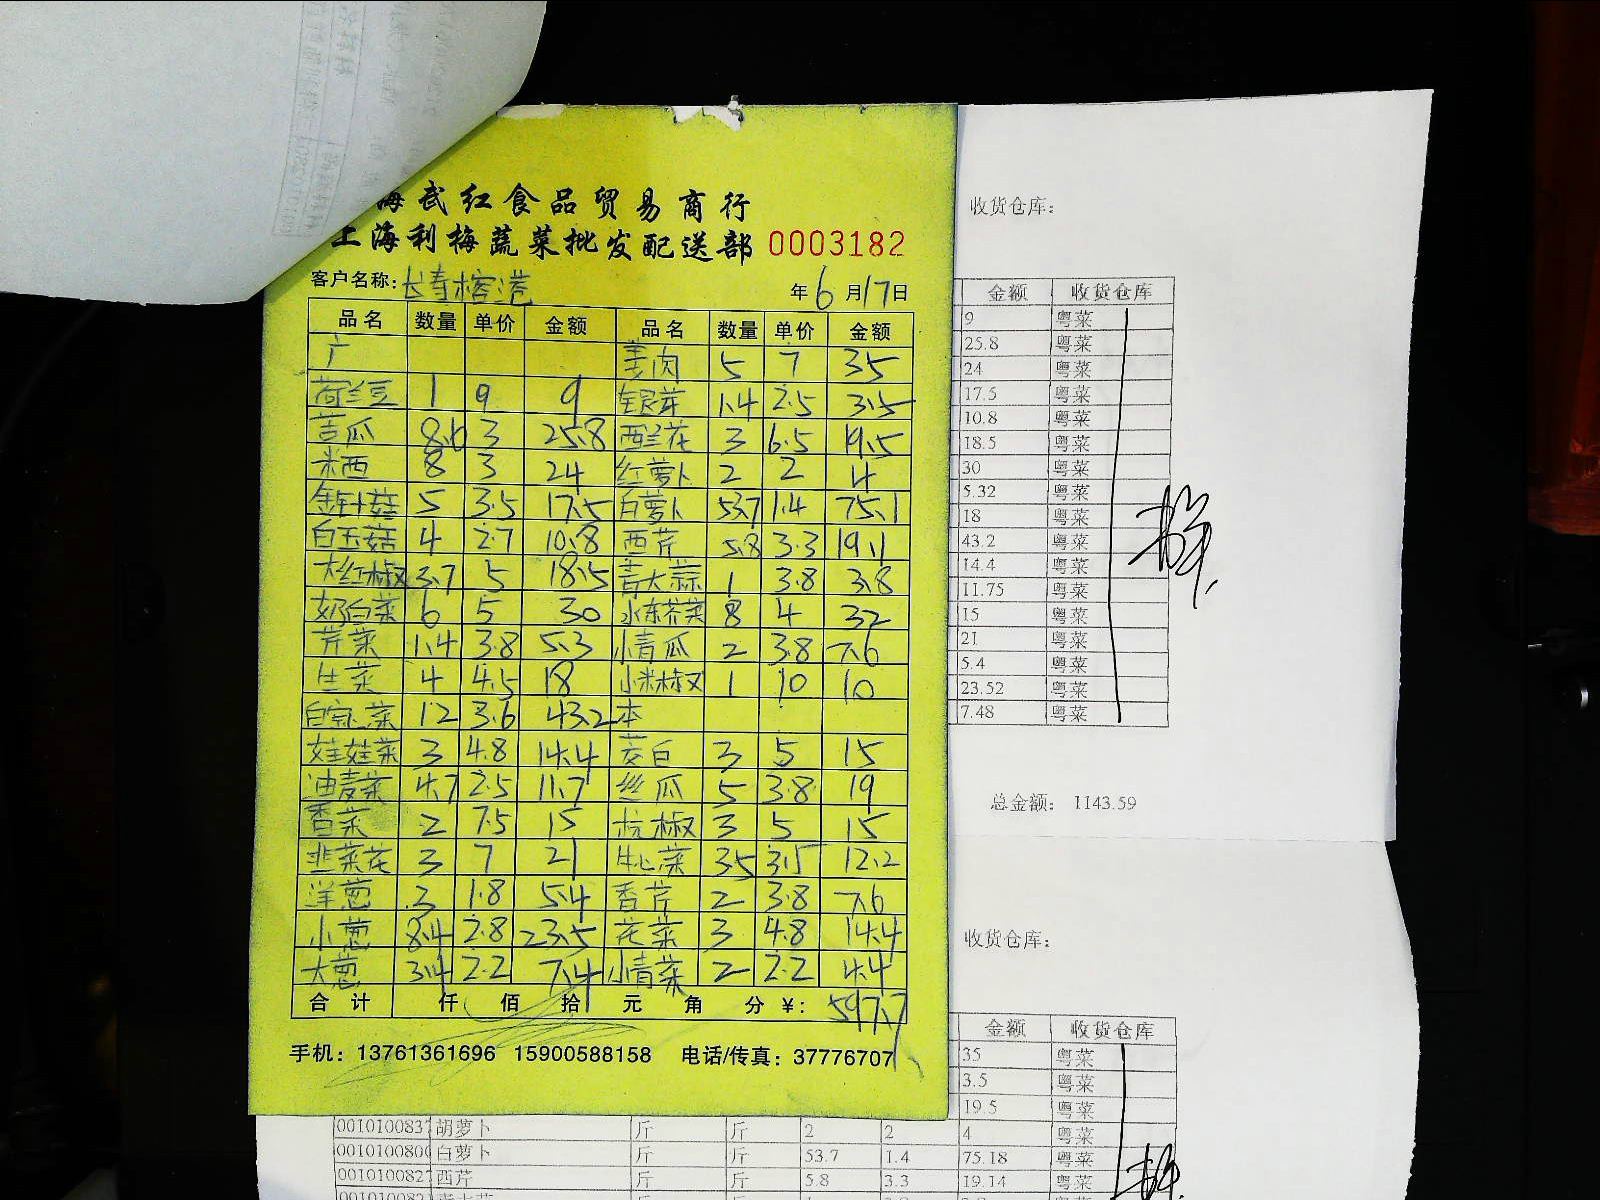 海武红食品贸易商行
上海利梅蔬菜批发配送部 0003182
客户名称:长寿榕港 年6月17日
品名 数量 单价 金额 品名 数量 单价 金额
广 姜肉 5 7 35
荷兰豆 1 9 9 银芽 1.4 2.5 3.5
苦瓜 8.6 3 25.8 西兰花 3 6.5 19.5
米西 8 3 24 红萝卜 2 2 4
金针菇 5 3.5 17.5 白萝卜 53.7 1.4 75.1
白玉菇 4 2.7 10.8 西芹 5.8 3.3 19.1
大红椒 3.7 5 18.5 青大蒜 1 3.8 3.8
奶白菜 6 5 30 水东芥菜 8 4 32
芹菜 1.4 3.8 5.3 小青瓜 2 3.8 7.6
生菜 4 4.5 18 小米椒 1 10 10
白菜 12 3.6 43.2 本
娃娃菜 3 4.8 14.4 茭白 3 5 15
油麦菜 4.7 2.5 11.7 丝瓜 5 3.8 19
香菜 2 7.5 15 杭椒 3 5 15
韭菜花 3 7 21 牛心菜 3.5 3.5 12.2
洋葱 3 1.8 5.4 香芹 2 3.8 7.6
小葱 8.4 2.8 23.5 花菜 3 4.8 14.4
大葱 3.4 2.2 7.4 小青菜 2 2.2 4.4
合计 仟 佰 拾 元 角 分 ¥: 597.7
手机: 13761361696 15900588158 电话/传真: 37776707
收货仓库:
金额 收货仓库
9 粤菜
25.8 粤菜
24 粤菜
17.5 粤菜
10.8 粤菜
18.5 粤菜
30 粤菜
5.32 粤菜
18 粤菜
43.2 粤菜
14.4 粤菜
11.75 粤菜
15 粤菜
21 粤菜
5.4 粤菜
23.52 粤菜
7.48 粤菜
总金额: 1143.59
收货仓库:
金额 收货仓库
35 粤菜
3.5 粤菜
19.5 粤菜
0010100837 胡萝卜 斤 斤 2 2 4 粤菜
001010080 白萝卜 斤 斤 53.7 1.4 75.18 粤菜
001010082 西芹 斤 斤 5.8 3.3 19.14 粤菜